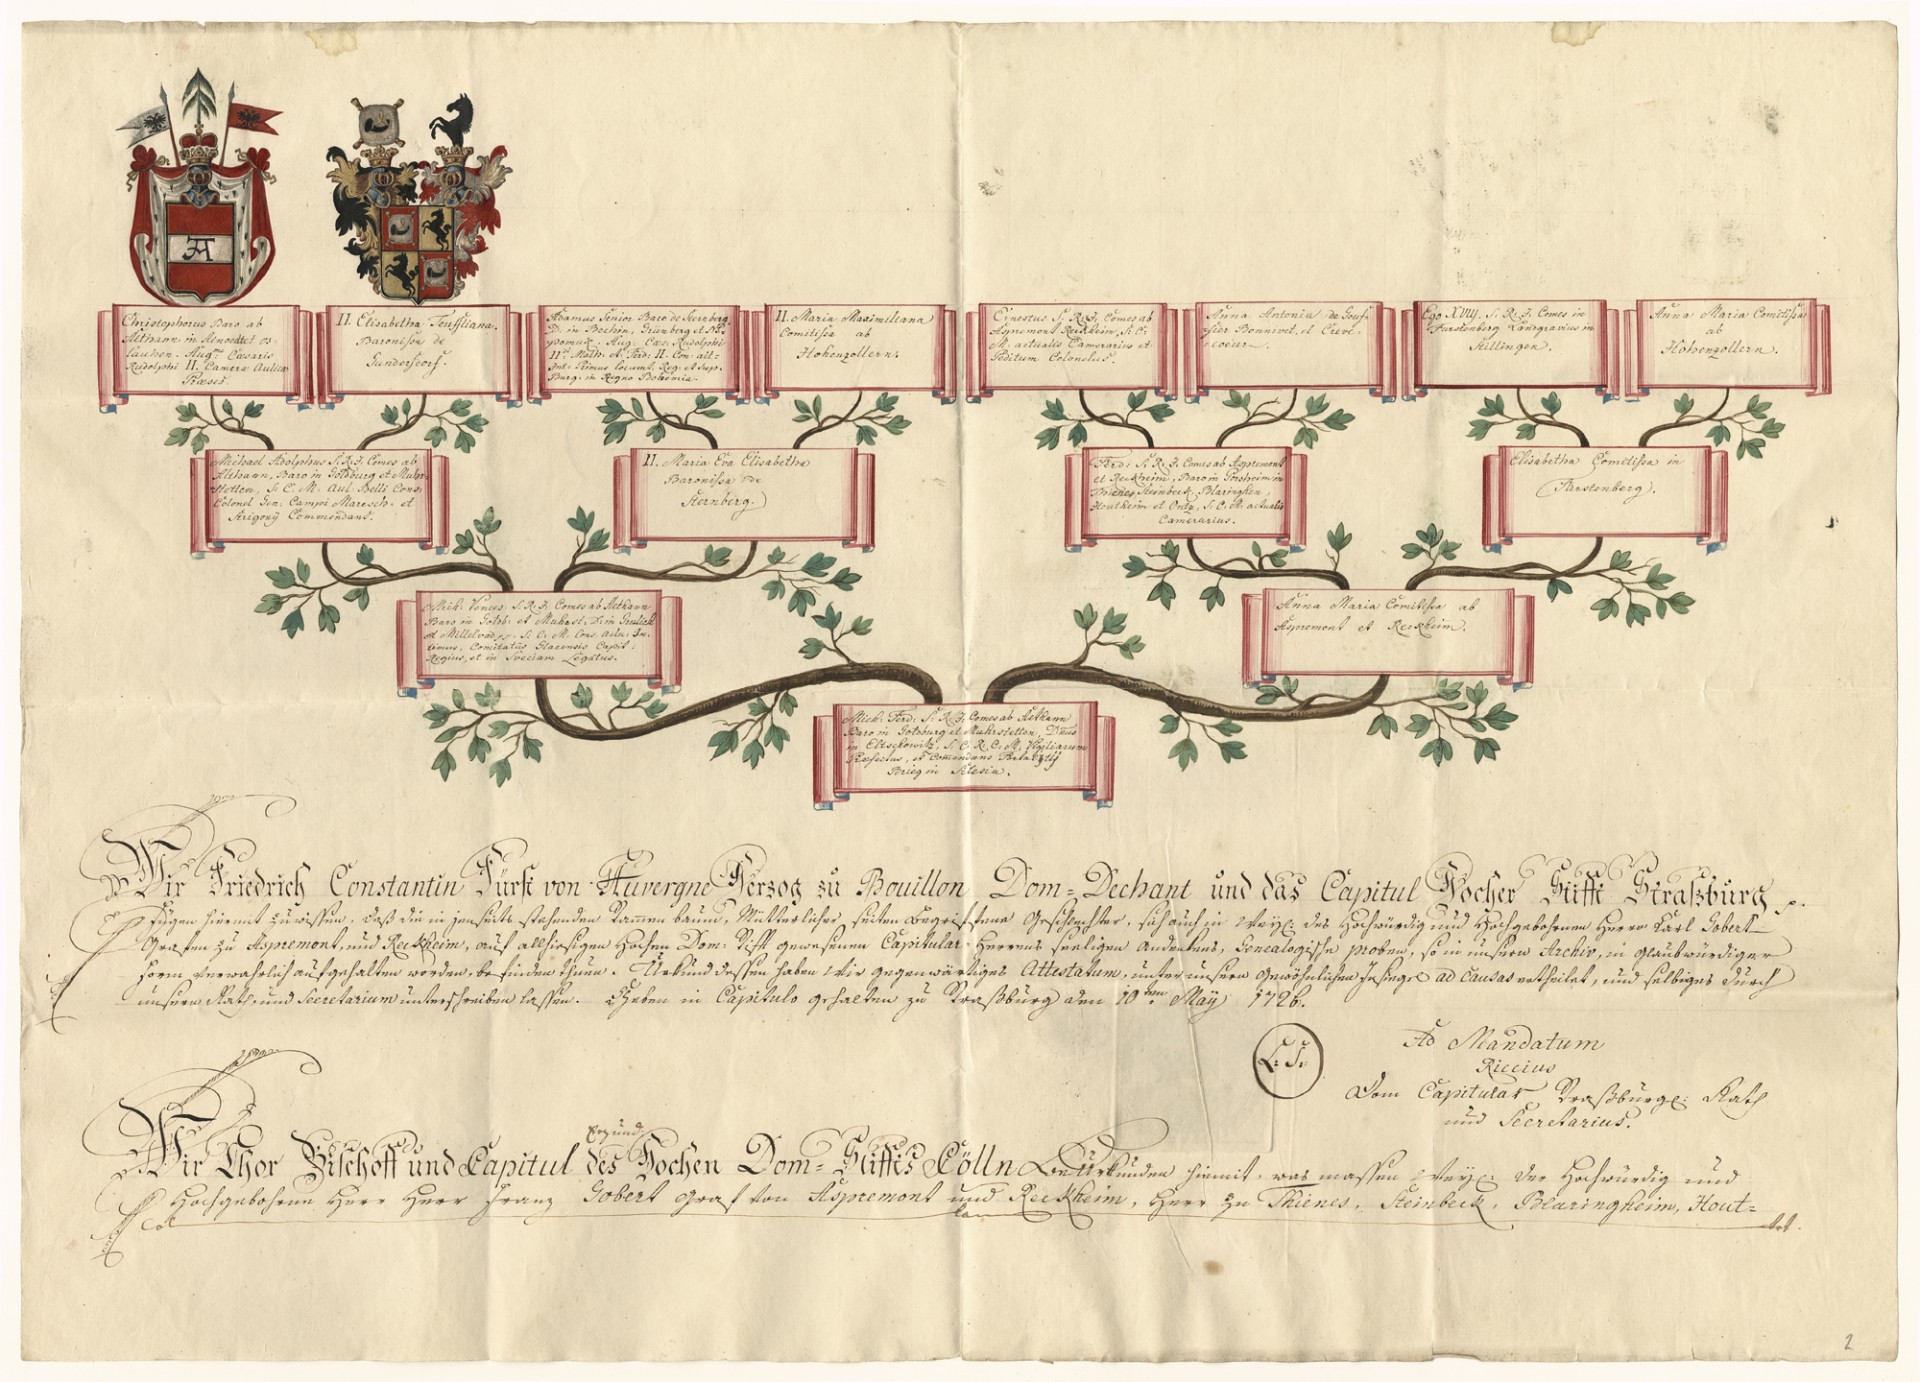 Christophorus Baro ab
Althann in
lauben. Aug.mi Cæsaris
Rudolphi II. Cameræ Aulicæ
Præses.
II. Elisabetha Teuffliana.
Baronissa de
Gundersdorf.
Adamus Senior Baro de Sternberg
D. in Bechin, Grünberg et
Aug: Cæs: Rudolphi
II.di Math. et Ferd: II. Con:
Int: Primus locumt. Reg: et Sup:
Burg: in Regno Bohemiæ.
II. Maria Maximiliana
Comitissa ab
Hohenzollern.
Ernestus S. R. J. Comes ab
Aspremont Reckheim, S. C.
M. actualis Camerarius et
Peditum Colonelus.
Anna Antonia de Gouf-
fier Bonnivet, et Creve-
coeur.
Ego XVIIJ. S. R. J. Comes in
Furstenberg Landgravius in
Stillingen.
Anna Maria Comitissa
ab
Hohenzollern.
Michael Adolphus S. R. J. Comes ab
Althann, Baro in Goldburg et Muhr-
stetten, S. C. M. Aul: Belli Cons:
Colonel Gen: Campi Maresch: et
Strigonÿ Commendans.
II. Maria Eva Elisabetha
Baronissa de
Sternberg.
Ferd: S. R. J. Comes ab Aspremont
et Reckheim, Baro in
Thienes, Steinbeck, Blaringhen,
Houtheim et S. C. M. actualis
Camerarius.
Elisabetha Comitissa in
Furstenberg.
Mich: Vences: S. R. J. Comes ab Althann
Baro in Goldb: et Muhrst: D. in Grulich
et Mittelwald S. C. M. Cons. actu: In-
timus, Comitatus Glacensis Capit:
Regius, et in Sveciam Legatus.
Anna Maria Comitissa ab
Aspremont et Reckheim.
Mich: Ferd: S. R. J. Comes ab Althann
Baro in Goldburg et Muhrstetten, D.nus
in S. C. R. C. M. Vigiliarum
Præfectus, et Comendans
Brieg in Silesia.
Wir Friedrich Constantin Fürst von Auvergne Herzog zu Bouillon Dom=Dechant und das Capitul Hocher Stifft Straßburg p.
fügen hiermit zu wissen, daß die in jenseits stehenden Stammenbaum, Mütterlicher seiten begriffene Geschlechter, sich auch in Weyl: des Hochwürdig und Hochgebohrnen Herrn Karl Gobert
Grafen zu Aspremont, und Reckheim, auf allhiesigen Hochen Dom-Stifft gewesenen Capitular-Herrens seeligen andenkens, Genealogische proben, so in unsern Archiv, in glaubwürdiger
form verwahrlich aufgehalten werden, befinden thuen. Urkund dessen haben Wir gegenwärtiges Attestatum, unter unsern Gewöhnlichen Insiegl ad causas ertheilet, und selbiges durch
unsern Rath, und Secretarium unterschreiben lassen. Geben in Capitulo gehalten zu Straßburg den 10.ten Maÿ 1726.
L. S.
Ad Mandatum
Riccius
Dom Capitular Straßburg: Rath
und Secretarius.
Wir Chor Bischoff und Capitul des Hochen Dom=Stiffts Cölln Beurkunden hiemit, was massen Weyl: der Hochwürdig und
Hochgebohrne Herr Herr Franz Gobert Graf von Aspremont und Reckheim, Herr zu Thienes, Steinbeck, Blaringheim, Hout=
2